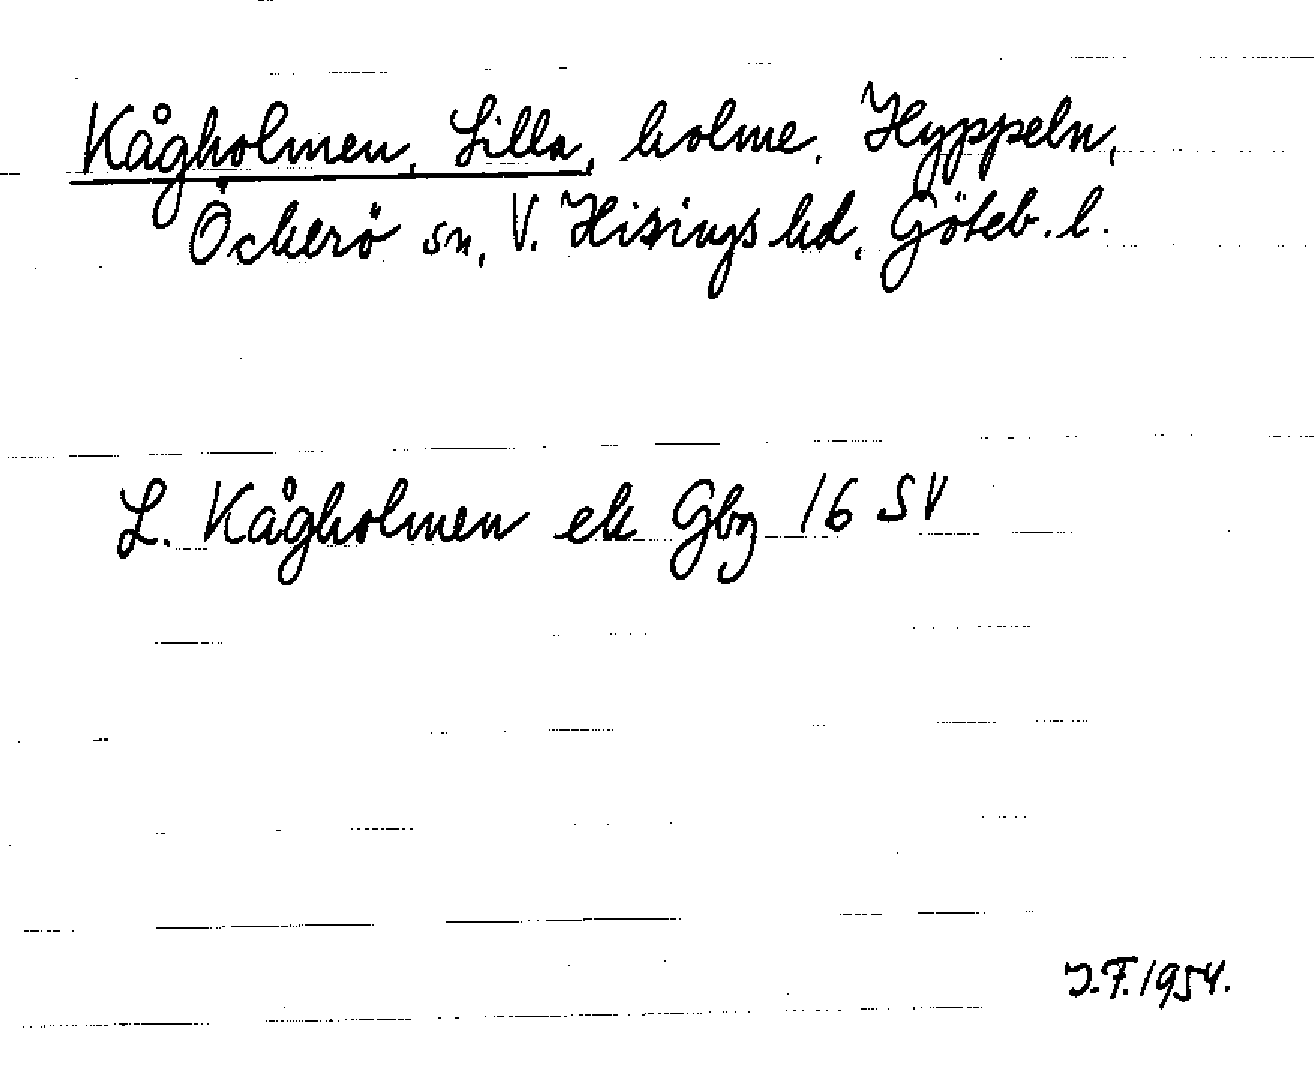 Kågholmen, Lilla, holme, Hyppeln,
Öckerö sn, V. Hisings hd, Göteb. l.
L. Kågholmen ek Gbg 16 SV
J.F. 1954.